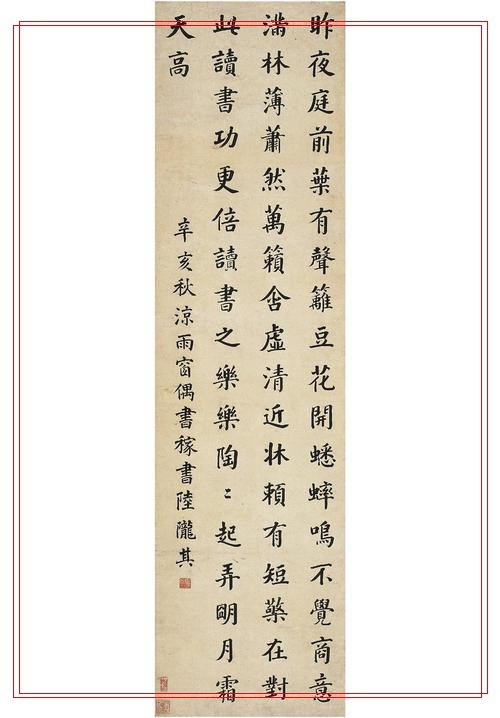 昨夜庭前葉有聲籬豆花開蟋蟀鳴不覺商意
滿林薄蕭然萬籟舍虛清近牀賴有短檠在對
此讀書功更倍讀書之樂樂陶〻起弄明月霜
天高
辛亥秋涼雨窗偶書稼書陸隴其